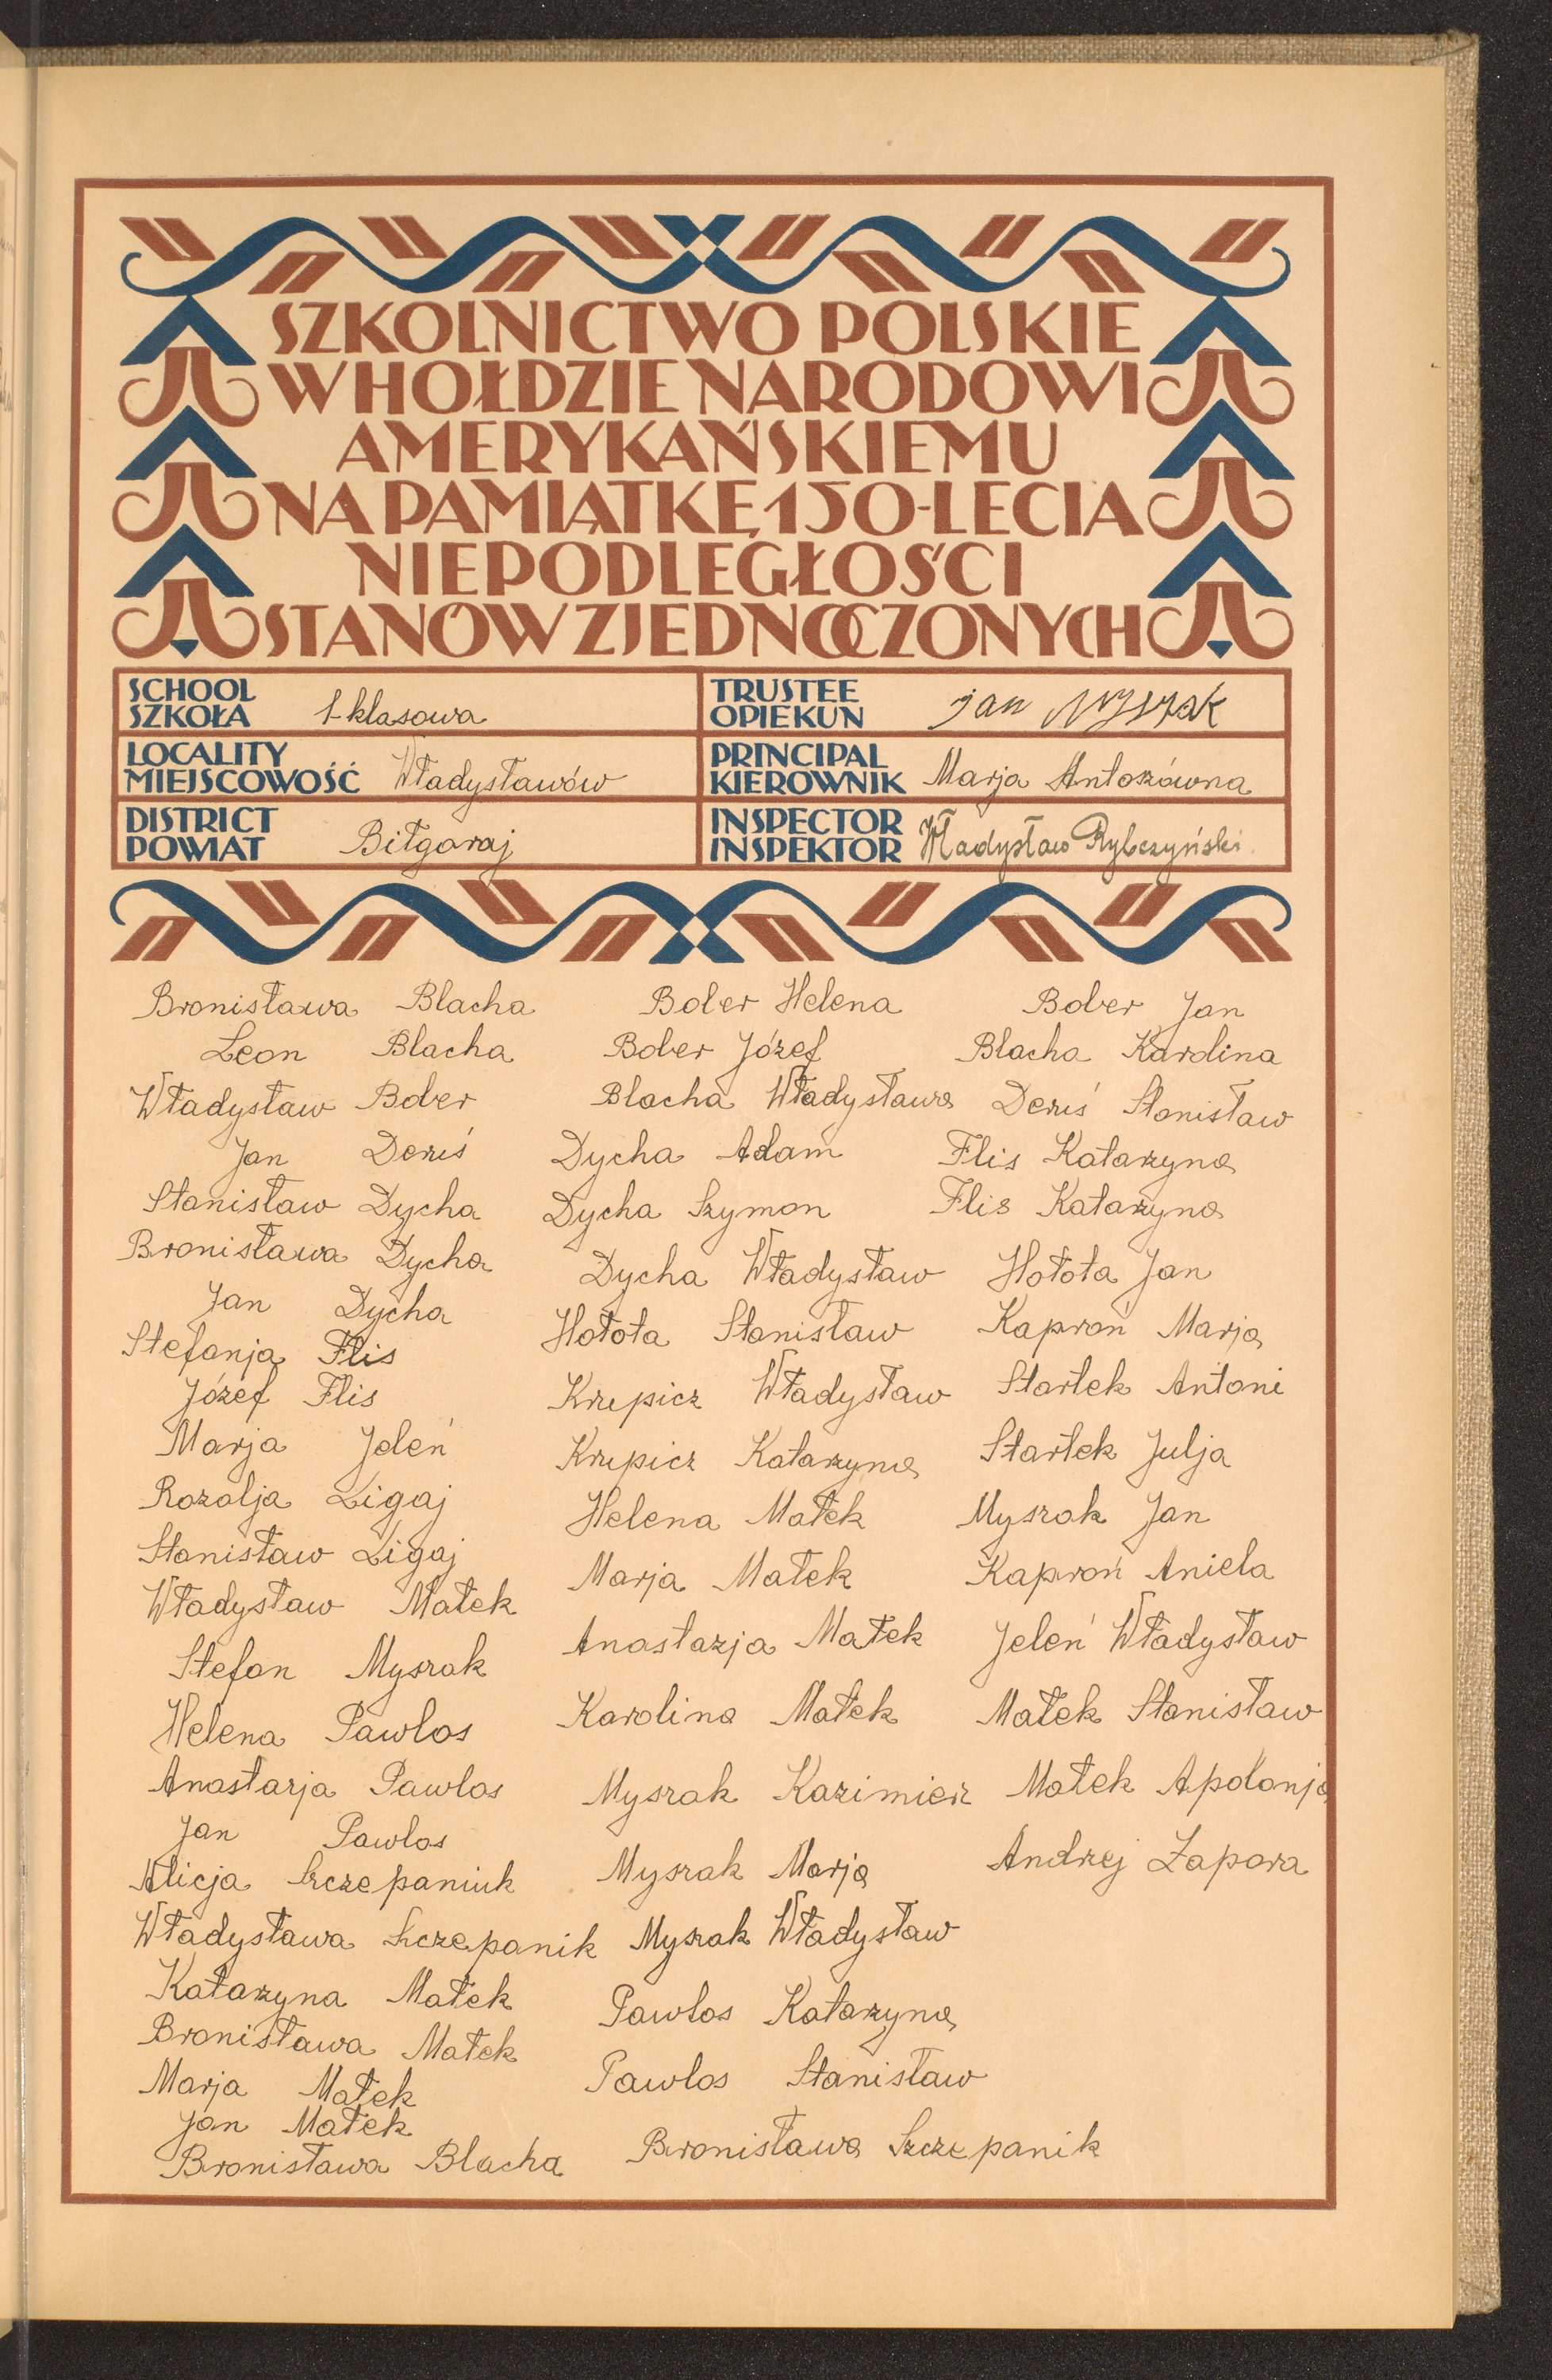 SZKOLNICTWO POLSKIE
W HOŁDZIE NARODOWI
AMERYKAŃSKIEMU
NA PAMIĄTKĘ 150-LECIA
NIEPODLEGŁOŚCI
STANÓW ZJEDNOCZONYCH
SCHOOL
SZKOŁA 1-klasowa
TRUSTEE
OPIEKUN Jan Myszak
LOCALITY
MIEJSCOWOŚĆ Władysławów
PRINCIPAL
KIEROWNIK Marja Antoszówna
DISTRICT
POWIAT Biłgoraj
INSPECTOR
INSPEKTOR Władysław Rybczyński
Bronisława Blacha
Leon Blacha
Władysław Bober
Jan Deruś
Stanisław Dycha
Bronisława Dycha
Jan Dycha
Stefanja Flis
Józef Flis
Marja Jeleń
Rozalja Ligaj
Stanisław Ligaj
Władysław Małek
Stefan Myszak
Helena Pawlos
Anastazja Pawlos
Jan Pawlos
Alicja Szczepaniuk
Władysława Szczepanik
Katarzyna Małek
Bronisława Małek
Marja Małek
Jan Małek
Bronisława Blacha
Bober Helena
Bober Józef
Blacha Władysława
Dycha Adam
Dycha Szymon
Dycha Władysław
Hołota Stanisław
Krzepicz Władysław
Krzepicz Katarzyna
Helena Małek
Marja Małek
Anastazja Małek
Karolina Małek
Myszak Kazimierz
Myszak Marja
Myszak Władysław
Pawlos Katarzyna
Pawlos Stanisław
Bronisława Szczepanik
Bober Jan
Blacha Karolina
Deruś Stanisław
Flis Katarzyna
Flis Katarzyna
Hołota Jan
Kaproń Marja
Startek Antoni
Startek Julja
Myszak Jan
Kaproń Aniela
Jeleń Władysław
Małek Stanisław
Małek Apolonja
Andrzej Zapora